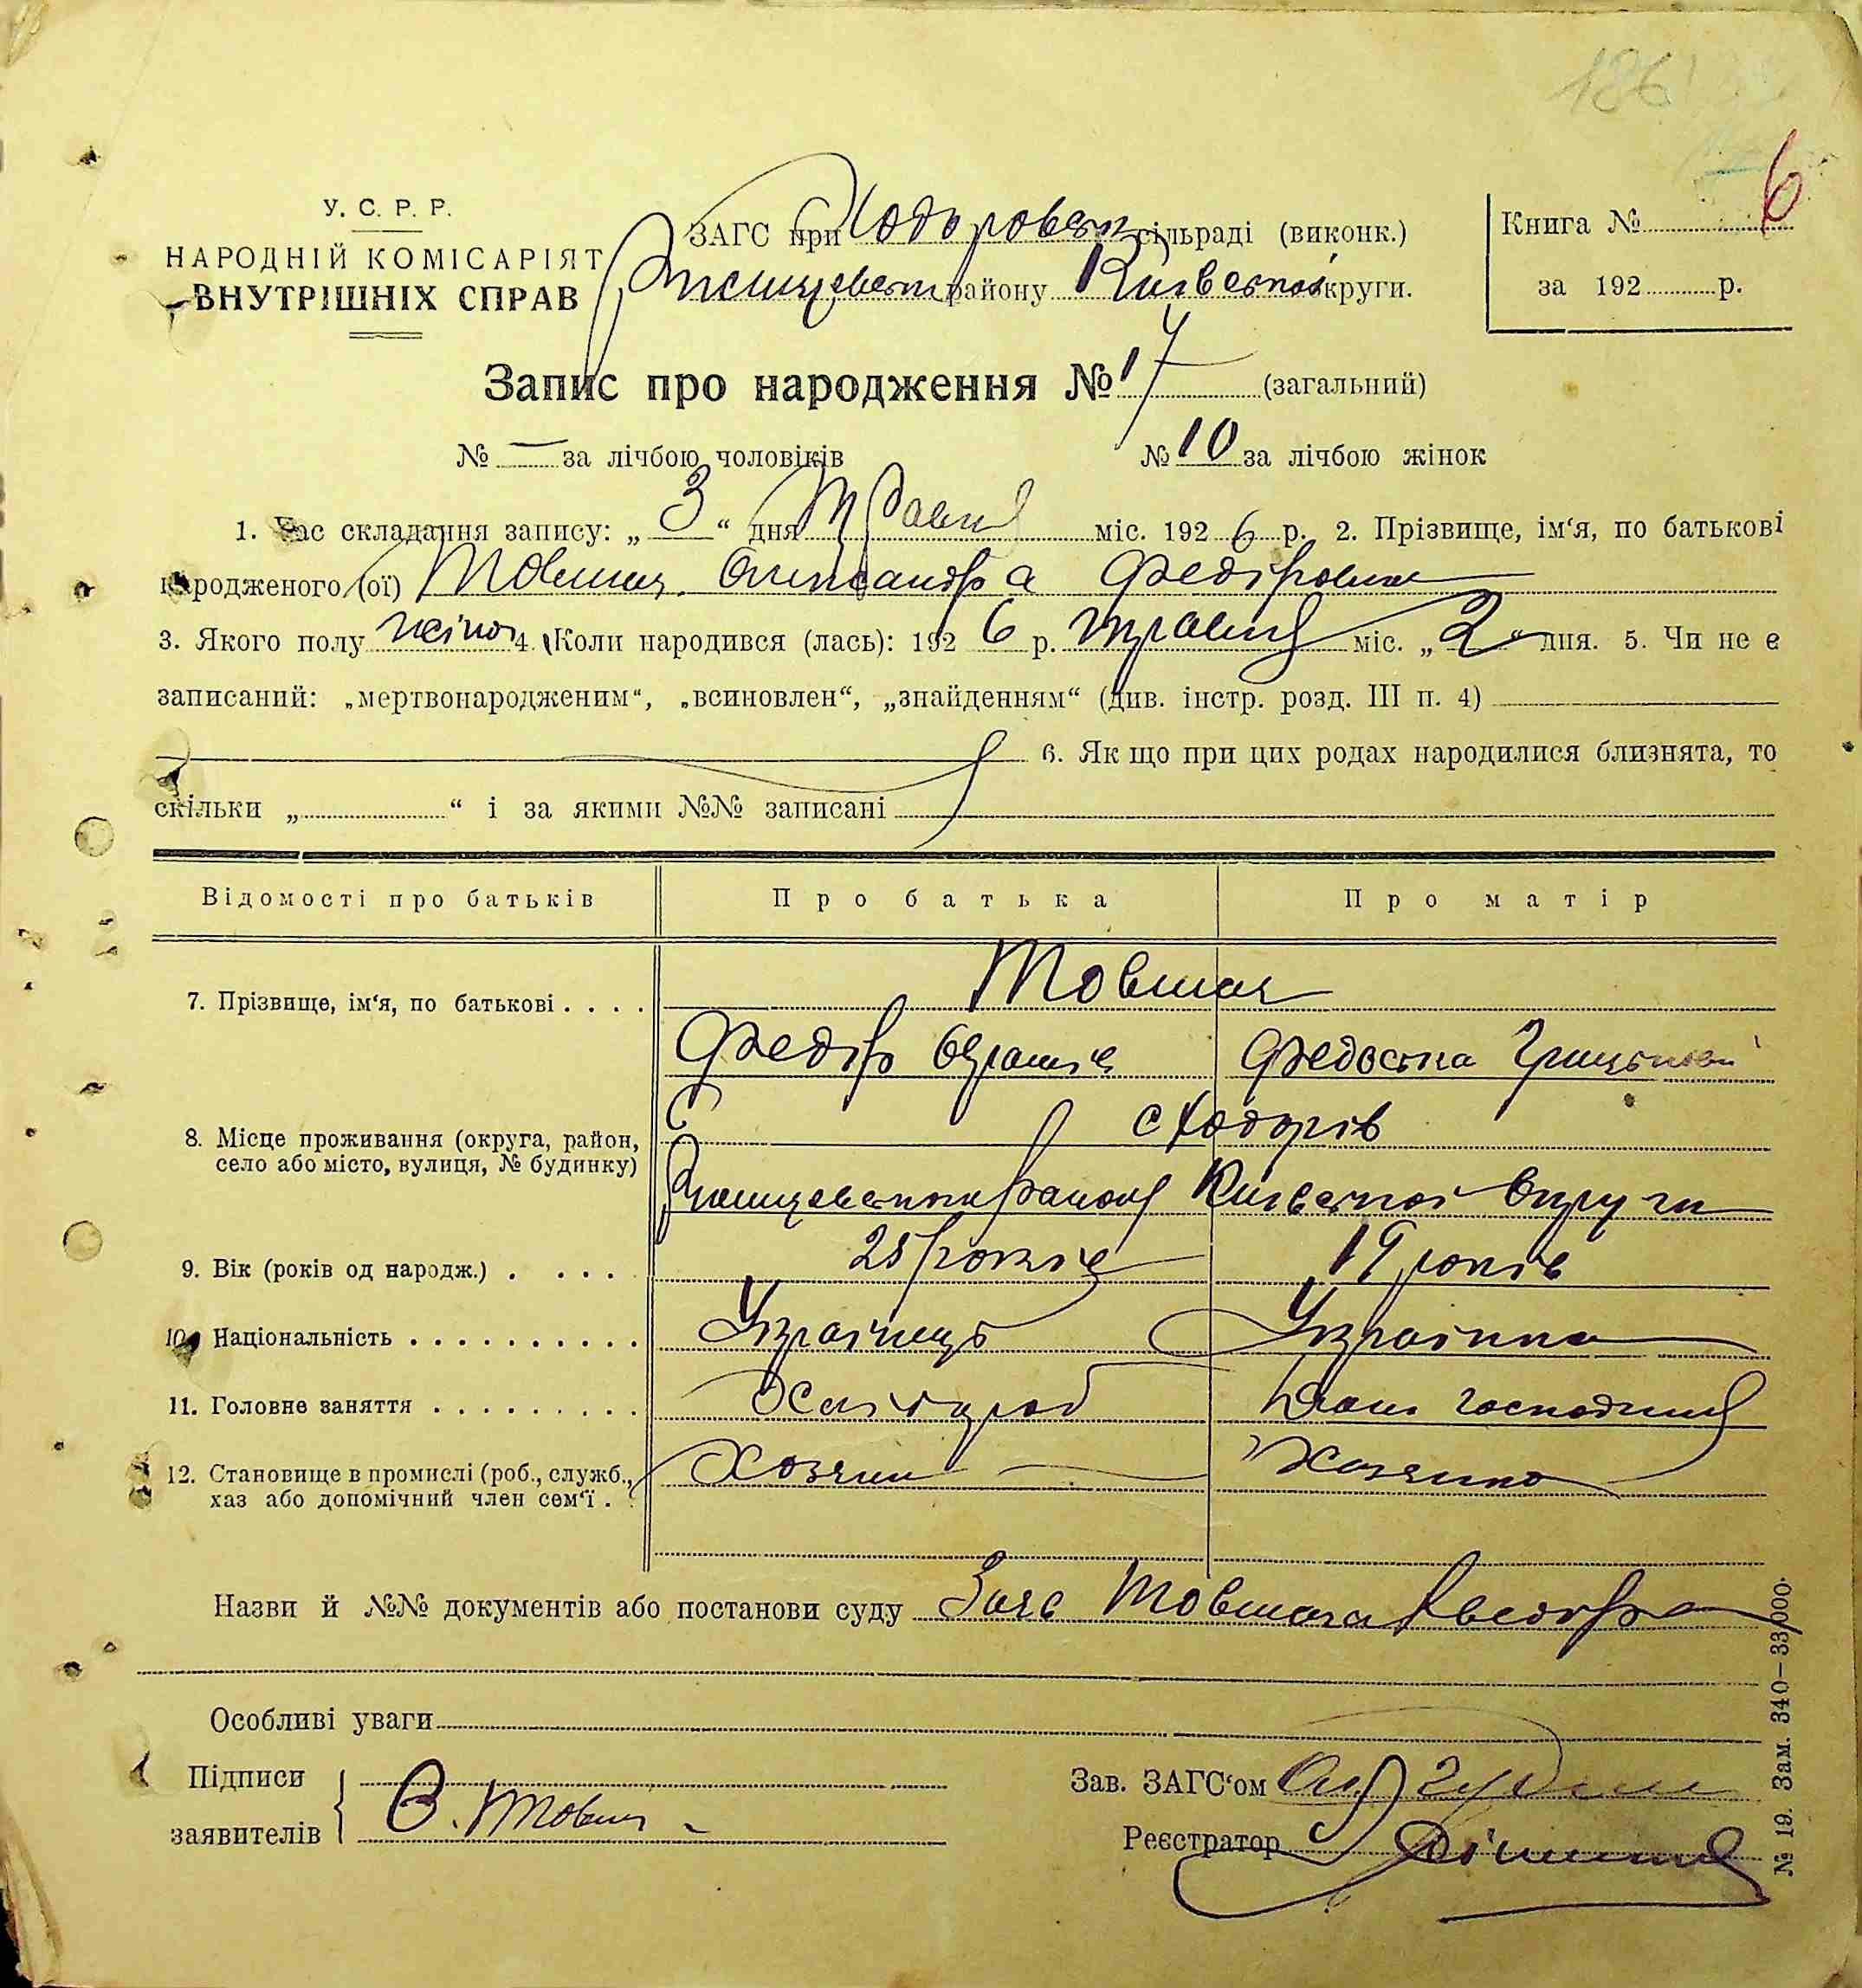 186
6
У. С. Р. Р.
НАРОДНІЙ КОМІСАРІЯТ
ВНУТРІШНІХ СПРАВ
ЗАГС при Ходоровськ сільраді (виконк.)
району Київської округи.
Книга №
за 192 р.
Запис про народження № 17 (загальний)
№ — за лічбою чоловіків № 10 за лічбою жінок
1. Час складання запису: „ 3 “ дня Травня міс. 192 6 р. 2. Прізвище, ім‘я, по батькові
народженого (ої) Товмач Олександра Федіровна
3. Якого полу жіноч 4. Коли народився (лась): 192 6 р. травня міс. „ 2 “ дня. 5. Чи не є
записаний: „мертвонародженим“, „всиновлен“, „знайденням“ (див. інстр. розд. III п. 4)
6. Як що при цих родах народилися близнята, то
скільки „ “ і за якими №№ записані
Відомості про батьків Про батька Про матір
7. Прізвище, ім‘я, по батькові . . . . Товмач
Федір Федоська
8. Місце проживання (округа, район, с Ходорів
село або місто, вулиця, № будинку) району Київської округи
9. Вік (років од народж.) . . . . . 25 років 19 років
10. Національність . . . . . . . . . . Українець Українка
11. Головне заняття . . . . . . . . . Хлібороб Дом. господиня
12. Становище в промислі (роб., служб., Хозяин Хазяйка
хаз або допомічний член сем‘ї .
Назви й №№ документів або постанови суду Заяв Товмача
Особливі уваги
Підписи
заявителів Товмач
Зав. ЗАГС‘ом
Реєстратор
№ 19. Зам. 340—33/000.